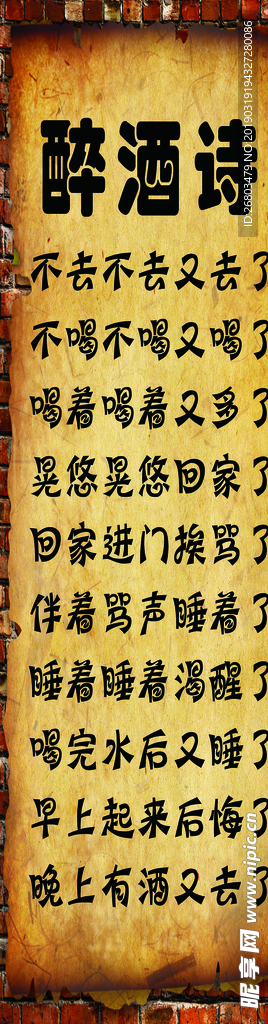 醉酒诗
不去不去又去了
不喝不喝又喝了
喝着喝着又多了
晃悠晃悠回家了
回家进门挨骂了
伴着骂声睡着了
睡着睡着渴醒了
喝完水后又睡了
早上起来后悔了
晚上有酒又去了
ID:26803479 NO:20190319194327280086
昵享网 www.nipic.cn